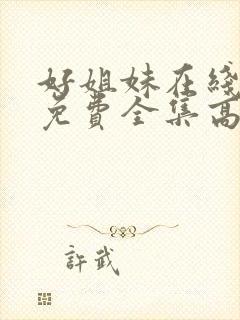 好姐妹在綫
免費全集高
許武